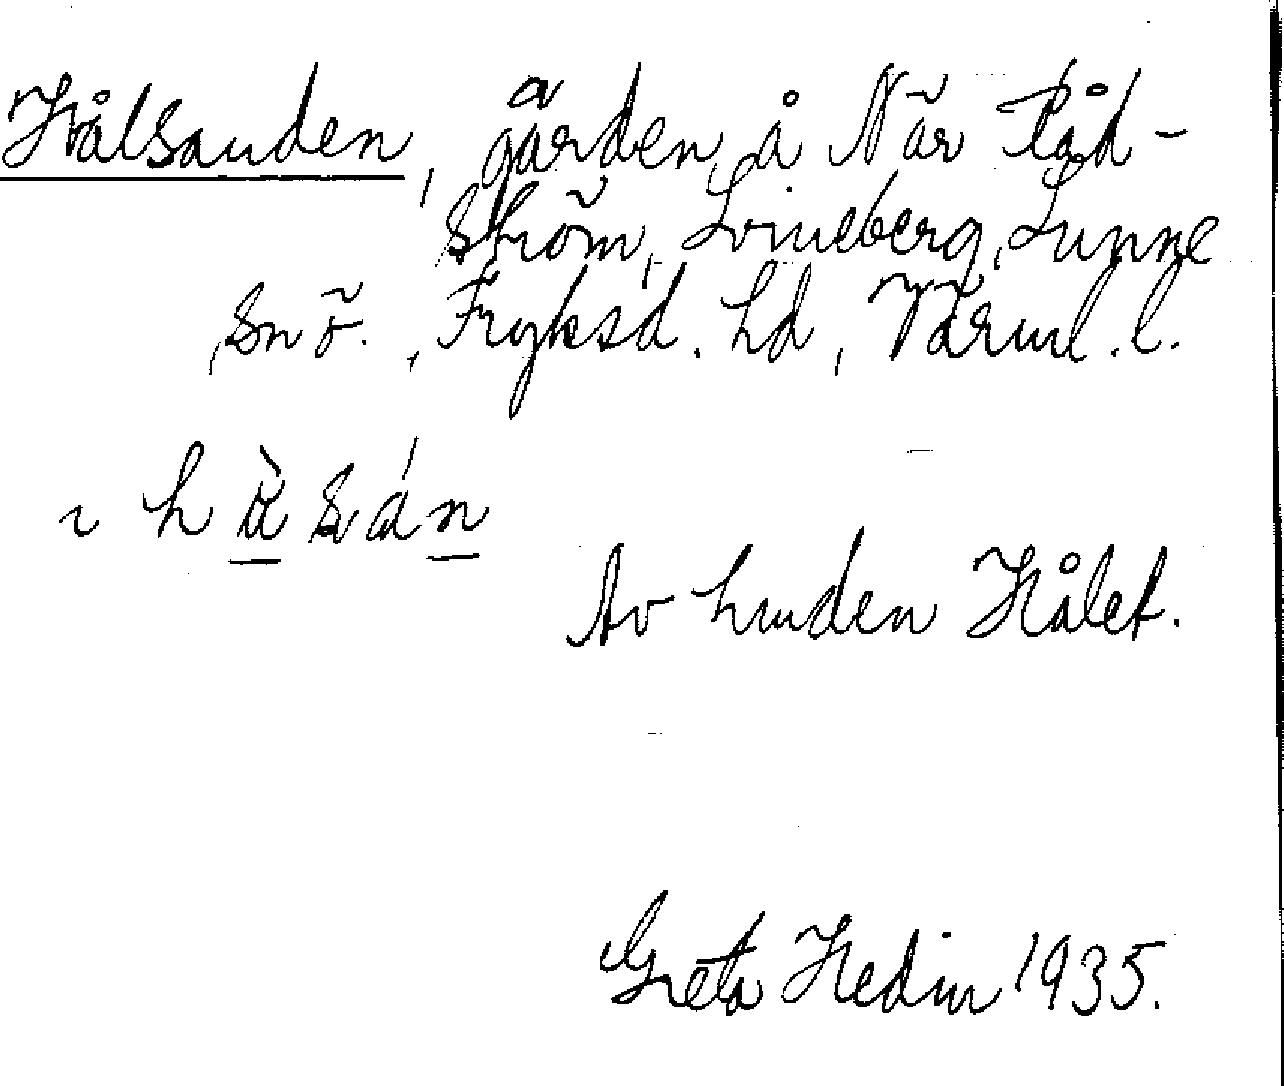 Hålsanden, gården, å När Råd-
ström, Svineberg, Sunne
sn ö., Fryksd. hd, Värml. l.
Av Hålet.
Greta Hedin 1935.